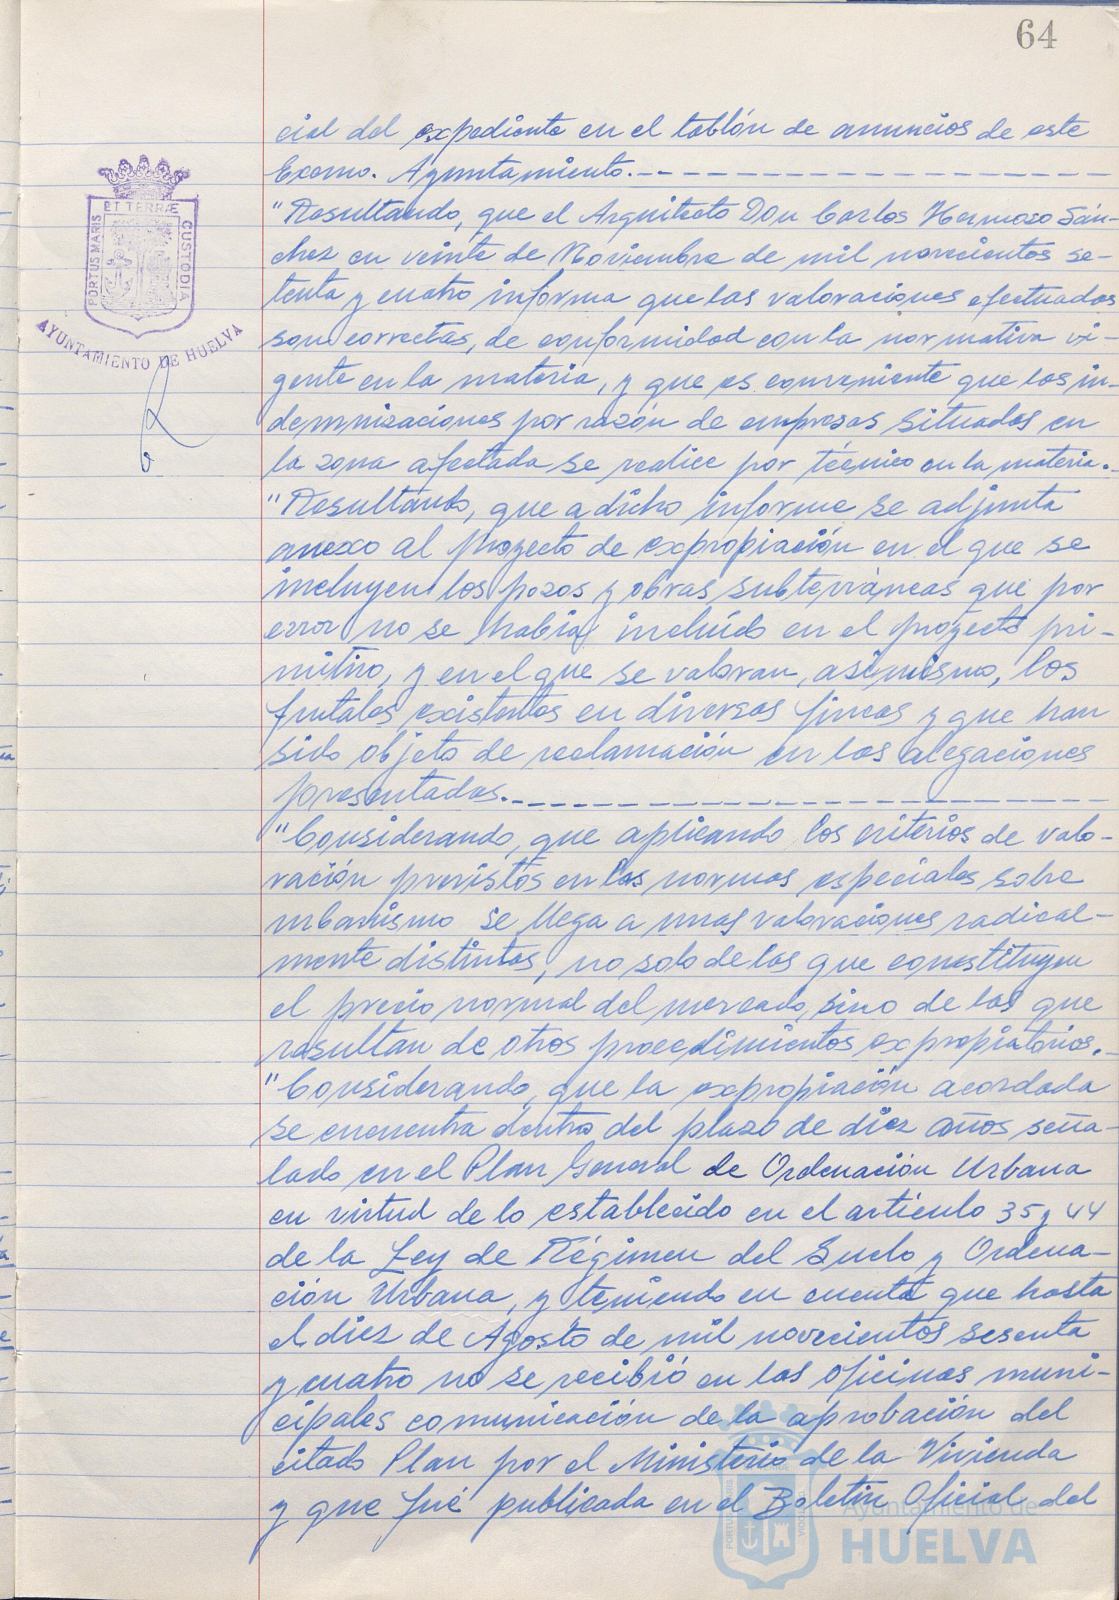 64
cial del expediente en el tablón de anuncios de este
Excmo. Ayuntamiento.
"Resultando, que el Arquitecto Don Carlos Hermoso Sán-
chez en veinte de Noviembre de mil novecientos se-
tenta y cuatro informa que las valoraciones efectuadas
son correctas, de conformidad con la normativa vi-
gente en la materia, y que es conveniente que las in-
demnizaciones por razón de empresas situadas en
la zona afectada se realice por técnico en la materia.-
"Resultando, que a dicho informe se adjunta
anexo al proyecto de expropiación en el que se
incluyen los pozos y obras subterráneas que por
error no se había incluído en el proyecto pri-
mitivo, y en el que se valoran, asimismo, los
frutales existentes en diversas fincas y que han
sido objeto de reclamación en las alegaciones
presentadas.
"Considerando, que aplicando los criterios de valo-
ración previstos en las normas especiales sobre
urbanismo se llega a unas valoraciones radical-
mente distintas, no solo de las que constituyen
el precio normal del mercado, sino de las que
resultan de otros procedimientos expropiatorios.-
"Considerando, que la expropiación acordada
se encuentra dentro del plazo de diez años seña-
lado en el Plan General de Ordenación Urbana
en virtud de lo establecido en el artículo 35 y 44
de la Ley de Régimen del Suelo y Ordena-
ción Urbana, y teniendo en cuenta que hasta
el diez de Agosto de mil novecientos sesenta
y cuatro no se recibió en las oficinas muni-
cipales comunicación de la aprobación del
citado Plan por el Ministerio de la Vivienda
y que fué publicada en el Boletín Oficial del
PORTUS MARIS ET TERRÆ CUSTODIA
AYUNTAMIENTO DE HUELVA
Ayuntamiento de
HUELVA